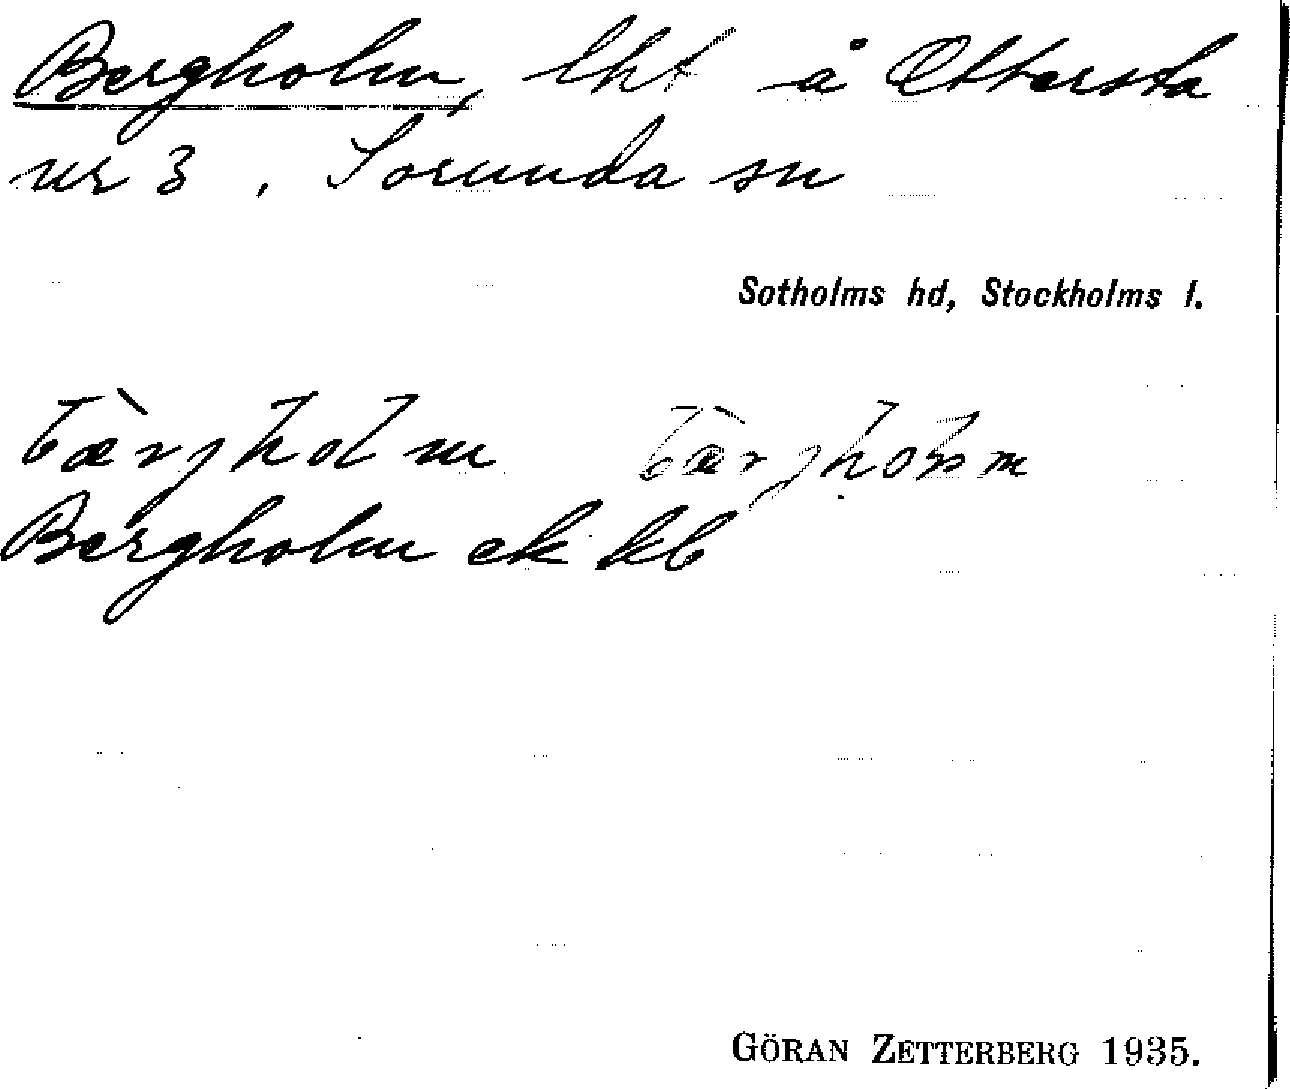 Bergholm, lht å Ottersta
nr 3, Sorunda sn
Sotholms hd, Stockholms l.
bàrjholm bàrjhòlm
Bergholm ek kb
GÖRAN ZETTERBERG 1935.